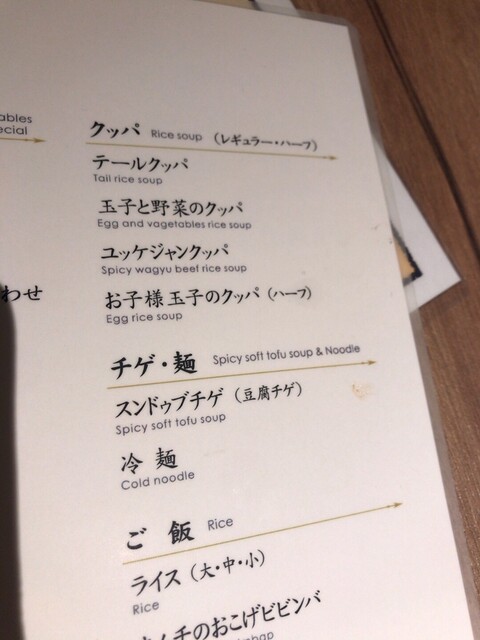 ables
ecial
わせ
クッパ Rice soup (レギュラー・ハーフ)
テールクッパ
Tail rice soup
玉子と野菜のクッパ
Egg and vagetables rice soup
ユッケジャンクッパ
Spicy wagyu beef rice soup
お子様玉子のクッパ (ハーフ)
Egg rice soup
チゲ・麺 Spicy soft tofu soup & Noodle
スンドゥブチゲ (豆腐チゲ)
Spicy soft tofu soup
冷麺
Cold noodle
ご飯 Rice
ライス (大・中・小)
Rice
のおこげビビンバ